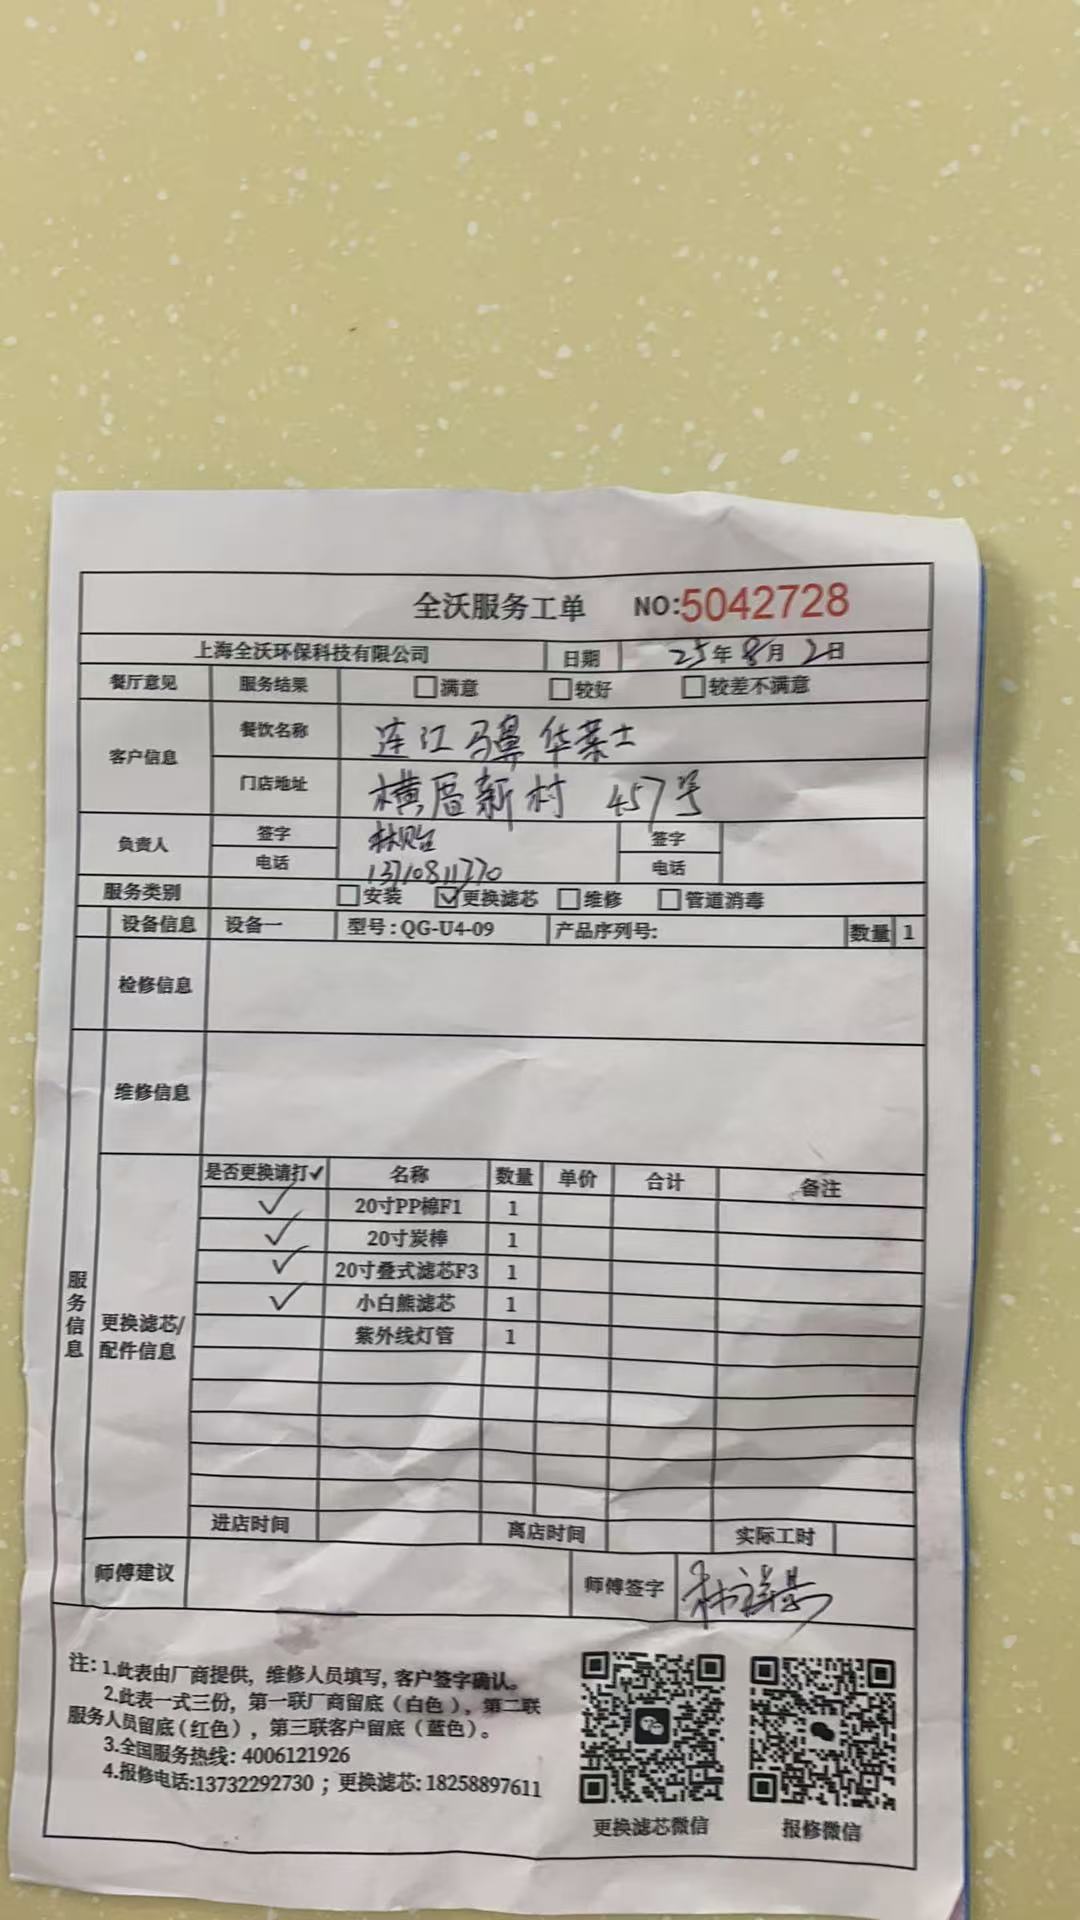 全沃服务工单 NO:5042728
上海全沃环保科技有限公司 日期 25年8月2日
餐厅意见 服务结果 □满意 □较好 □较差不满意
客户信息 餐饮名称 连江马鼻华莱士
门店地址 横厝新村 457号
负责人 签字 签字
电话 13710811770 电话
服务类别 □安装 ☑更换滤芯 □维修 □管道消毒
设备信息 设备一 型号:QG-U4-09 产品序列号: 数量 1
检修信息
维修信息
服务信息
更换滤芯/配件信息
是否更换请打✓ 名称 数量 单价 合计 备注
✓ 20寸PP棉F1 1
✓ 20寸炭棒 1
✓ 20寸叠式滤芯F3 1
✓ 小白熊滤芯 1
紫外线灯管 1
进店时间 离店时间 实际工时
师傅建议 师傅签字
注:1.此表由厂商提供,维修人员填写,客户签字确认。
2.此表一式三份,第一联厂商留底(白色),第二联
服务人员留底(红色),第三联客户留底(蓝色)。
3.全国服务热线:4006121926
4.报修电话:13732292730;更换滤芯:18258897611
更换滤芯微信 报修微信